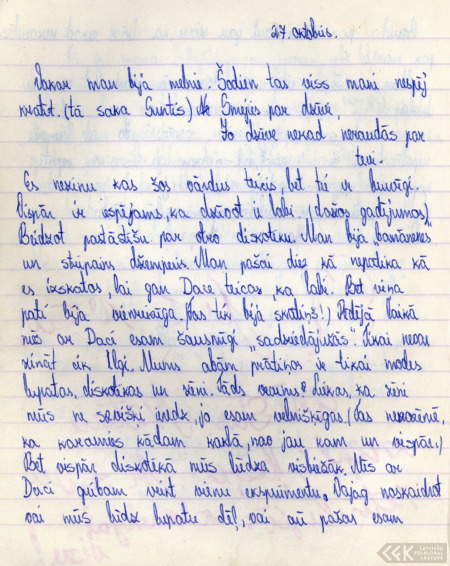 27. oktobris.
Vakar man bija melnie. Šodien tas viss mani nespēj
kratīt. (tā saka Guntis) Smejies par dzīvi,
Jo dzīve nekad neraudās par
tevi.
Es nezinu kas šos vārdus teicis, bet tie ir burvīgi.
Vispār ir iespējams, ka dzīvot ir labi. (dažos gadījumos)
Beidzot pastāstīšu par otro diskotēku. Man bija "banānenes"
un strīpains džemperis. Man pašai diez kā nepatika kā
es izskatos, lai gan Dace teicas, ka labi. Bet viņa
pati bija vienreizīga. (Tas tik bija skatiņš!) Pēdējā laikā
mēs ar Daci esam šausmīgi "sadziedājušās". Tikai nevar
zināt cik ilgi. Mums abām prātiņos ir tikai modes
lupatas, diskotēkas un zēni. Tāds vecums? Liekas, ka zēni
mūs ne sevišķi ieredz, jo esam velnišķīgas. (Tas nenozīmē,
ka karamies kādam kaklā, nav jau kam un vispār.)
Bet vispār diskotēkā mūs lūdza visbiežāk. Mēs ar
Daci gribam veikt vienu eksperimentu. Vajag noskaidrot
vai mūs lūdz lupatu dēļ, vai arī pašas esam
LATVIEŠU
FOLKLORAS
KRĀTUVE